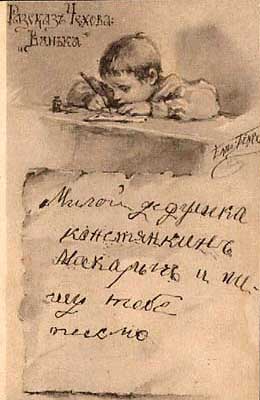 Разсказъ Чехова:
„Ванька"
Милой дедушка
канстянкинъ
Макарычъ и пи-
шу тебѣ
писмо